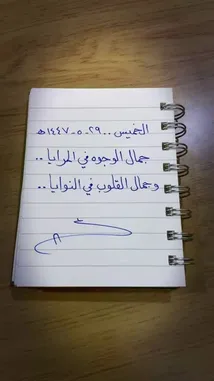 الخميس .. ٢٩-٥-١٤٤٧هـ
جمال الوجوه في المرايا ..
وجمال القلوب في النوايا ..